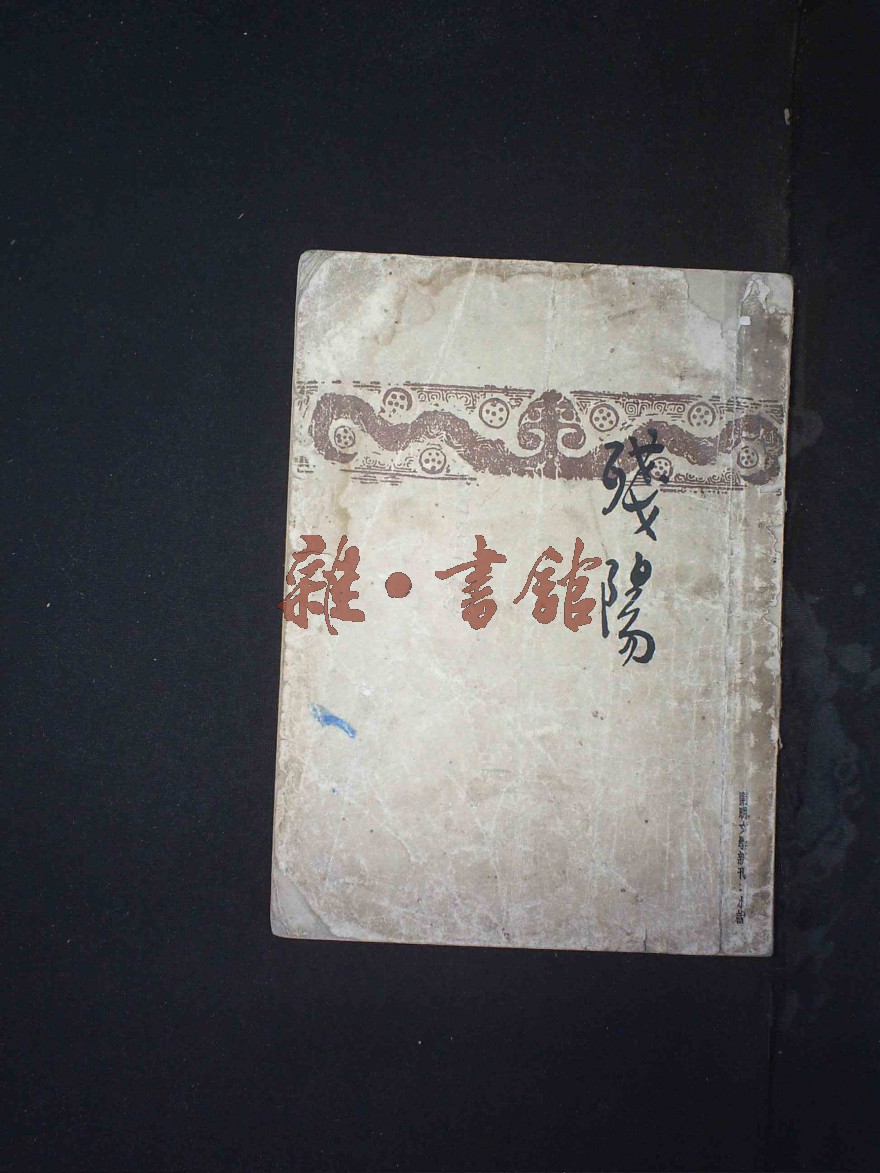 殘陽
雜·書館